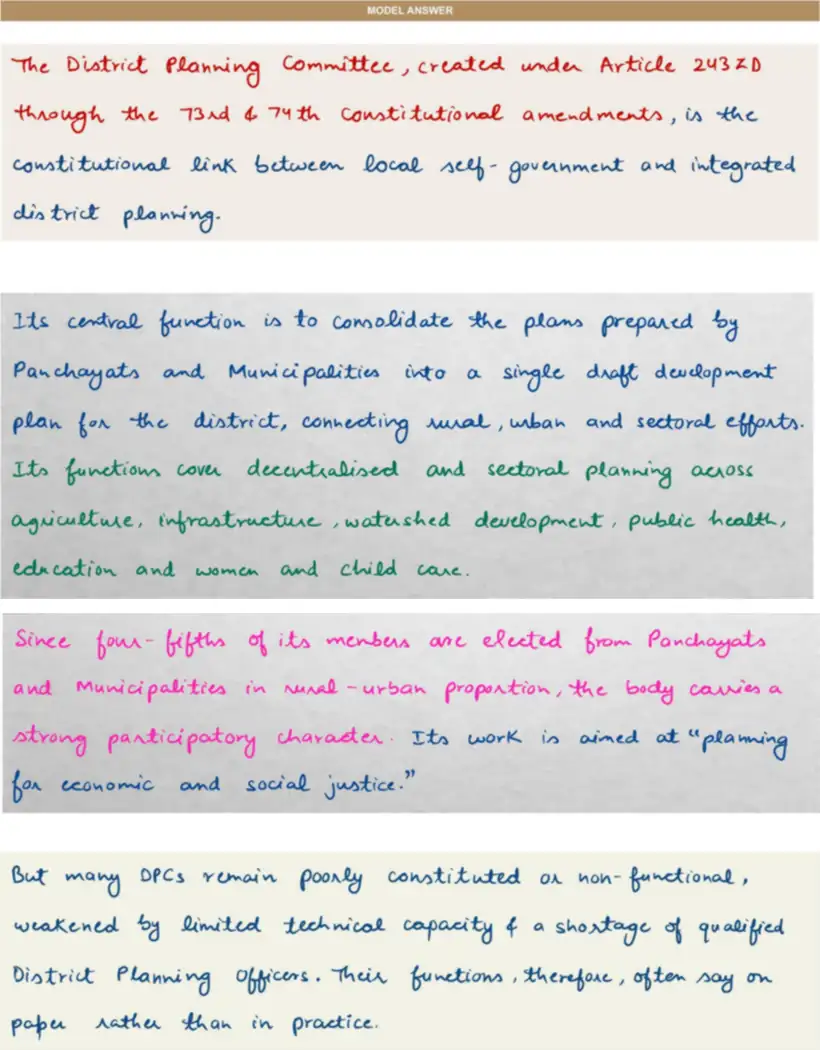 MODEL ANSWER
The District Planning Committee, created under Article 243ZD
through the 73rd & 74th Constitutional amendments, is the
constitutional link between local self-government and integrated
district planning.
Its central function is to consolidate the plans prepared by
Panchayats and Municipalities into a single draft development
plan for the district, connecting rural, urban and sectoral efforts.
Its functions cover decentralised and sectoral planning across
agriculture, infrastructure, watershed development, public health,
education and women and child care.
Since four-fifths of its members are elected from Panchayats
and Municipalities in rural-urban proportion, the body carries a
strong participatory character. Its work is aimed at "planning
for economic and social justice."
But many DPCs remain poorly constituted or non-functional,
weakened by limited technical capacity & a shortage of qualified
District Planning Officers. Their functions, therefore, often say on
paper rather than in practice.